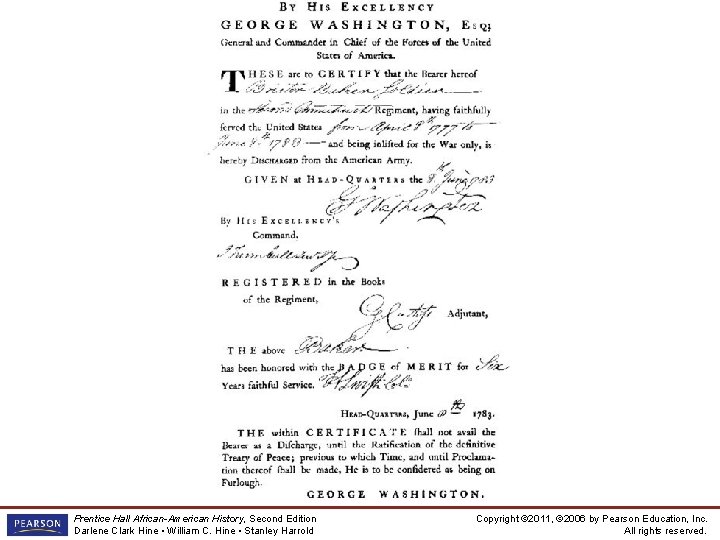 BY HIS EXCELLENCY
GEORGE WASHINGTON, ESQ;
General and Commander in Chief of the Forces of the United
States of America.
THESE are to CERTIFY that the Bearer hereof
Brister Baker Soldier
in the Connecticut Regiment, having faithfully
ferved the United States from April 8th 1777 to
June 8th 1783 and being inlifted for the War only, is
hereby DISCHARGED from the American Army.
GIVEN at HEAD-QUARTERS the 8th June 1783
G Washington
BY HIS EXCELLENCY's
Command.
J Trumbull Junr
REGISTERED in the Books
of the Regiment,
Adjutant,
THE above Baker
has been honored with the BADGE of MERIT for Six
Years faithful Service. H Swift Colo
HEAD-QUARTERS, June 8th 1783.
THE within CERTIFICATE fhall not avail the
Bearer as a Difcharge, until the Ratification of the definitive
Treaty of Peace; previous to which Time, and until Proclama-
tion thereof fhall be made, He is to be confidered as being on
Furlough.
GEORGE WASHINGTON.
PEARSON
Prentice Hall African-American History, Second Edition
Darlene Clark Hine • William C. Hine • Stanley Harrold
Copyright ©2011, ©2006 by Pearson Education, Inc.
All rights reserved.